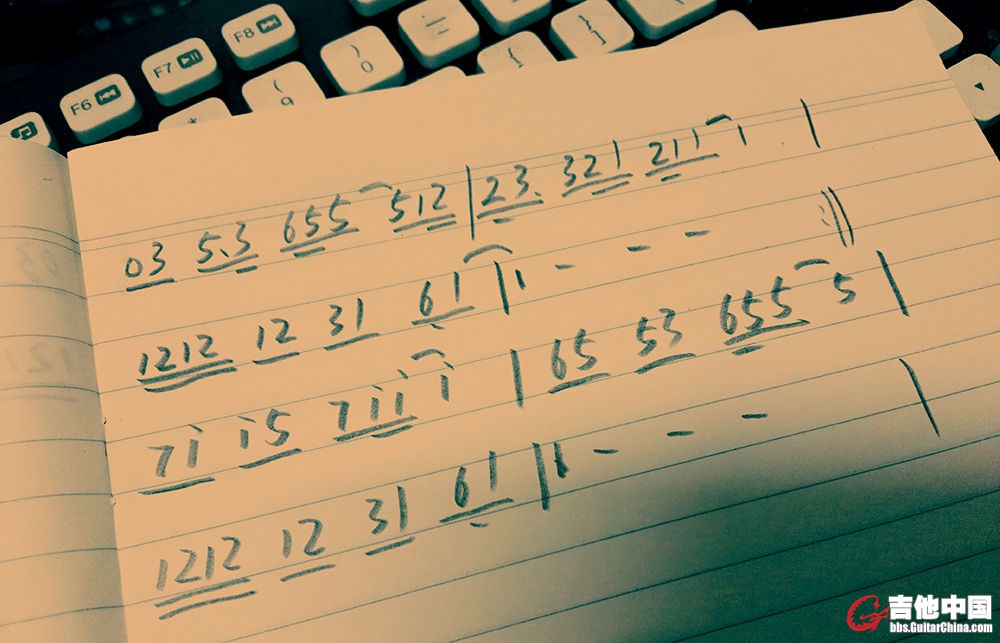 F6 F7 F8
* ( 9 ) 0 — = { }
03 5.3 655 512 | 23. 321 211 1 |
1212 12 31 61 | 1 - - - :||
71 15 711 1 | 65 53 655 5 |
1212 12 31 61 || 1 - - - |
吉他中国
bbs.GuitarChina.com